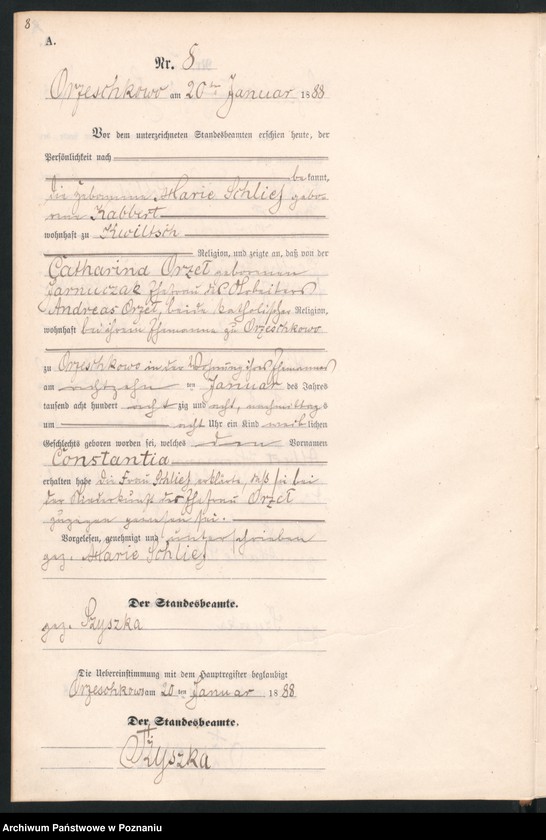 8
A.
Nr. 8
Orzeschkowo am 20ten Januar 1888
Vor dem unterzeichneten Standesbeamten erschien heute, der
Persönlichkeit nach
bekannt,
die Hebamme Marie Schlief gebo-
rene Kabbert
wohnhaft zu Kwiltsch
Religion, und zeigte an, daß von der
Catharina Orzeł geborenen
Garnuczak Ehefrau des Arbeiters
Andreas Orzeł, beide katholischer Religion,
wohnhaft bei ihrem Ehemanne zu Orzeschkowo
zu Orzeschkowo in der Wohnung ihres Ehemannes
am achtzehn ten Januar des Jahres
tausend acht hundert achtzig und acht, nachmittags
um acht Uhr ein Kind weiblichen
Geschlechts geboren worden sei, welches den Vornamen
Constantia
erhalten habe die Frau Schlief erklärte, daß sie bei
der Niederkunft der Ehefrau Orzeł
zugegen gewesen sei.
Vorgelesen, genehmigt und unterschrieben
gez. Marie Schlief
Der Standesbeamte.
gez. Ryszka
Die Uebereinstimmung mit dem Hauptregister beglaubigt
Orzeschkowo am 20 ten Januar 1888
Der Standesbeamte.
Ryszka
Archiwum Państwowe w Poznaniu